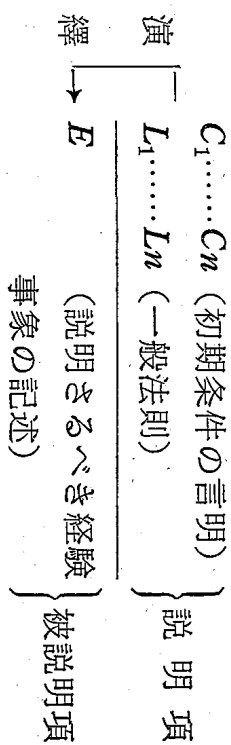 演繹
C₁……Cn（初期条件の言明）
L₁……Ln（一般法則）
説明項
E（説明さるべき経験
事象の記述）
被説明項